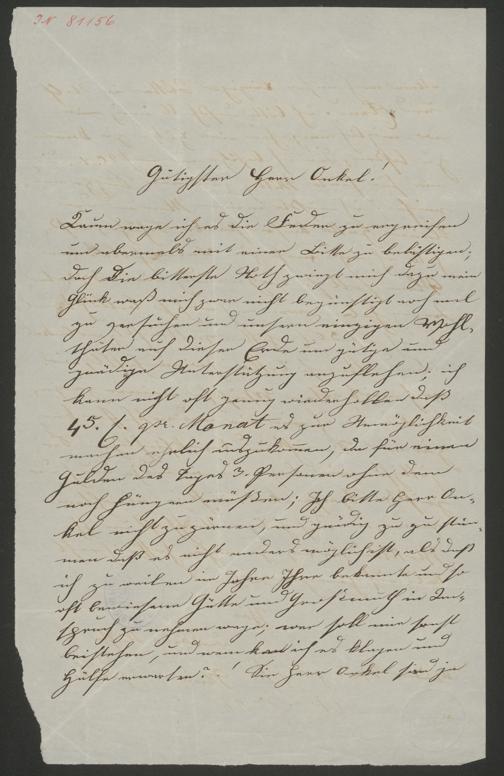 IN 81156
Gütigster Herr Onkel!
Kaum wage ich es die Feder zu ergreifen
um abermals mit einer Bitte zu belästigen,
doch die bitterste Noth zwingt mich dazu mein
Glück was mich zwar nicht begünstigt noch mal
zu versuchen und unsern einzigen Wohl-
thäter auf dieser Erde um gütige und
gnädige Unterstützung anzuflehen. ich
kann nicht oft genug wiederhollen daß
45. f. pr. Monat es zur Unmöglichkeit
machen ehrlich auszukommen, da für einen
Gulden des Tages 3. Personen ohne dem
noch hungern müßen; Ich bitte Herr On-
kel nicht zu zürnen, und gnädig zu zu stim-
men daß es nicht anders möglich ist, als daß
ich zu weilen in Jahre Ihre bekannte und so
oft bewiesene Gütte und Großmuth in An-
spruch zu nehmen wage. wer soll mir sonst
beistehen, und wem kann ich es klagen und
Hülfe erwarten?! Sie Herr Onkel sind ja